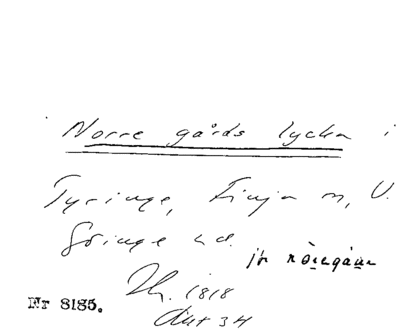 Norre gårds lycka i
Tyringe, Finja sn, V.
Göinge hd.
jfr
Lh. 1818
Akt 34
Nr 8185.